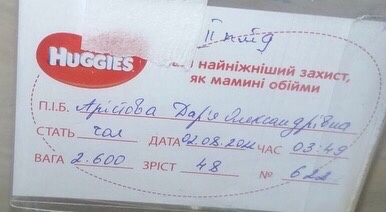 II плід
HUGGIES
найніжніший захист,
як мамині обійми
П.І.Б. Арістова Дар'я Олександрівна
СТАТЬ чол ДАТА ЧАС 03:49
ВАГА 2.600 ЗРІСТ 48 № 622